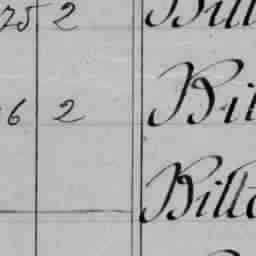 75 2 Bill
6 2 Bil
Bill